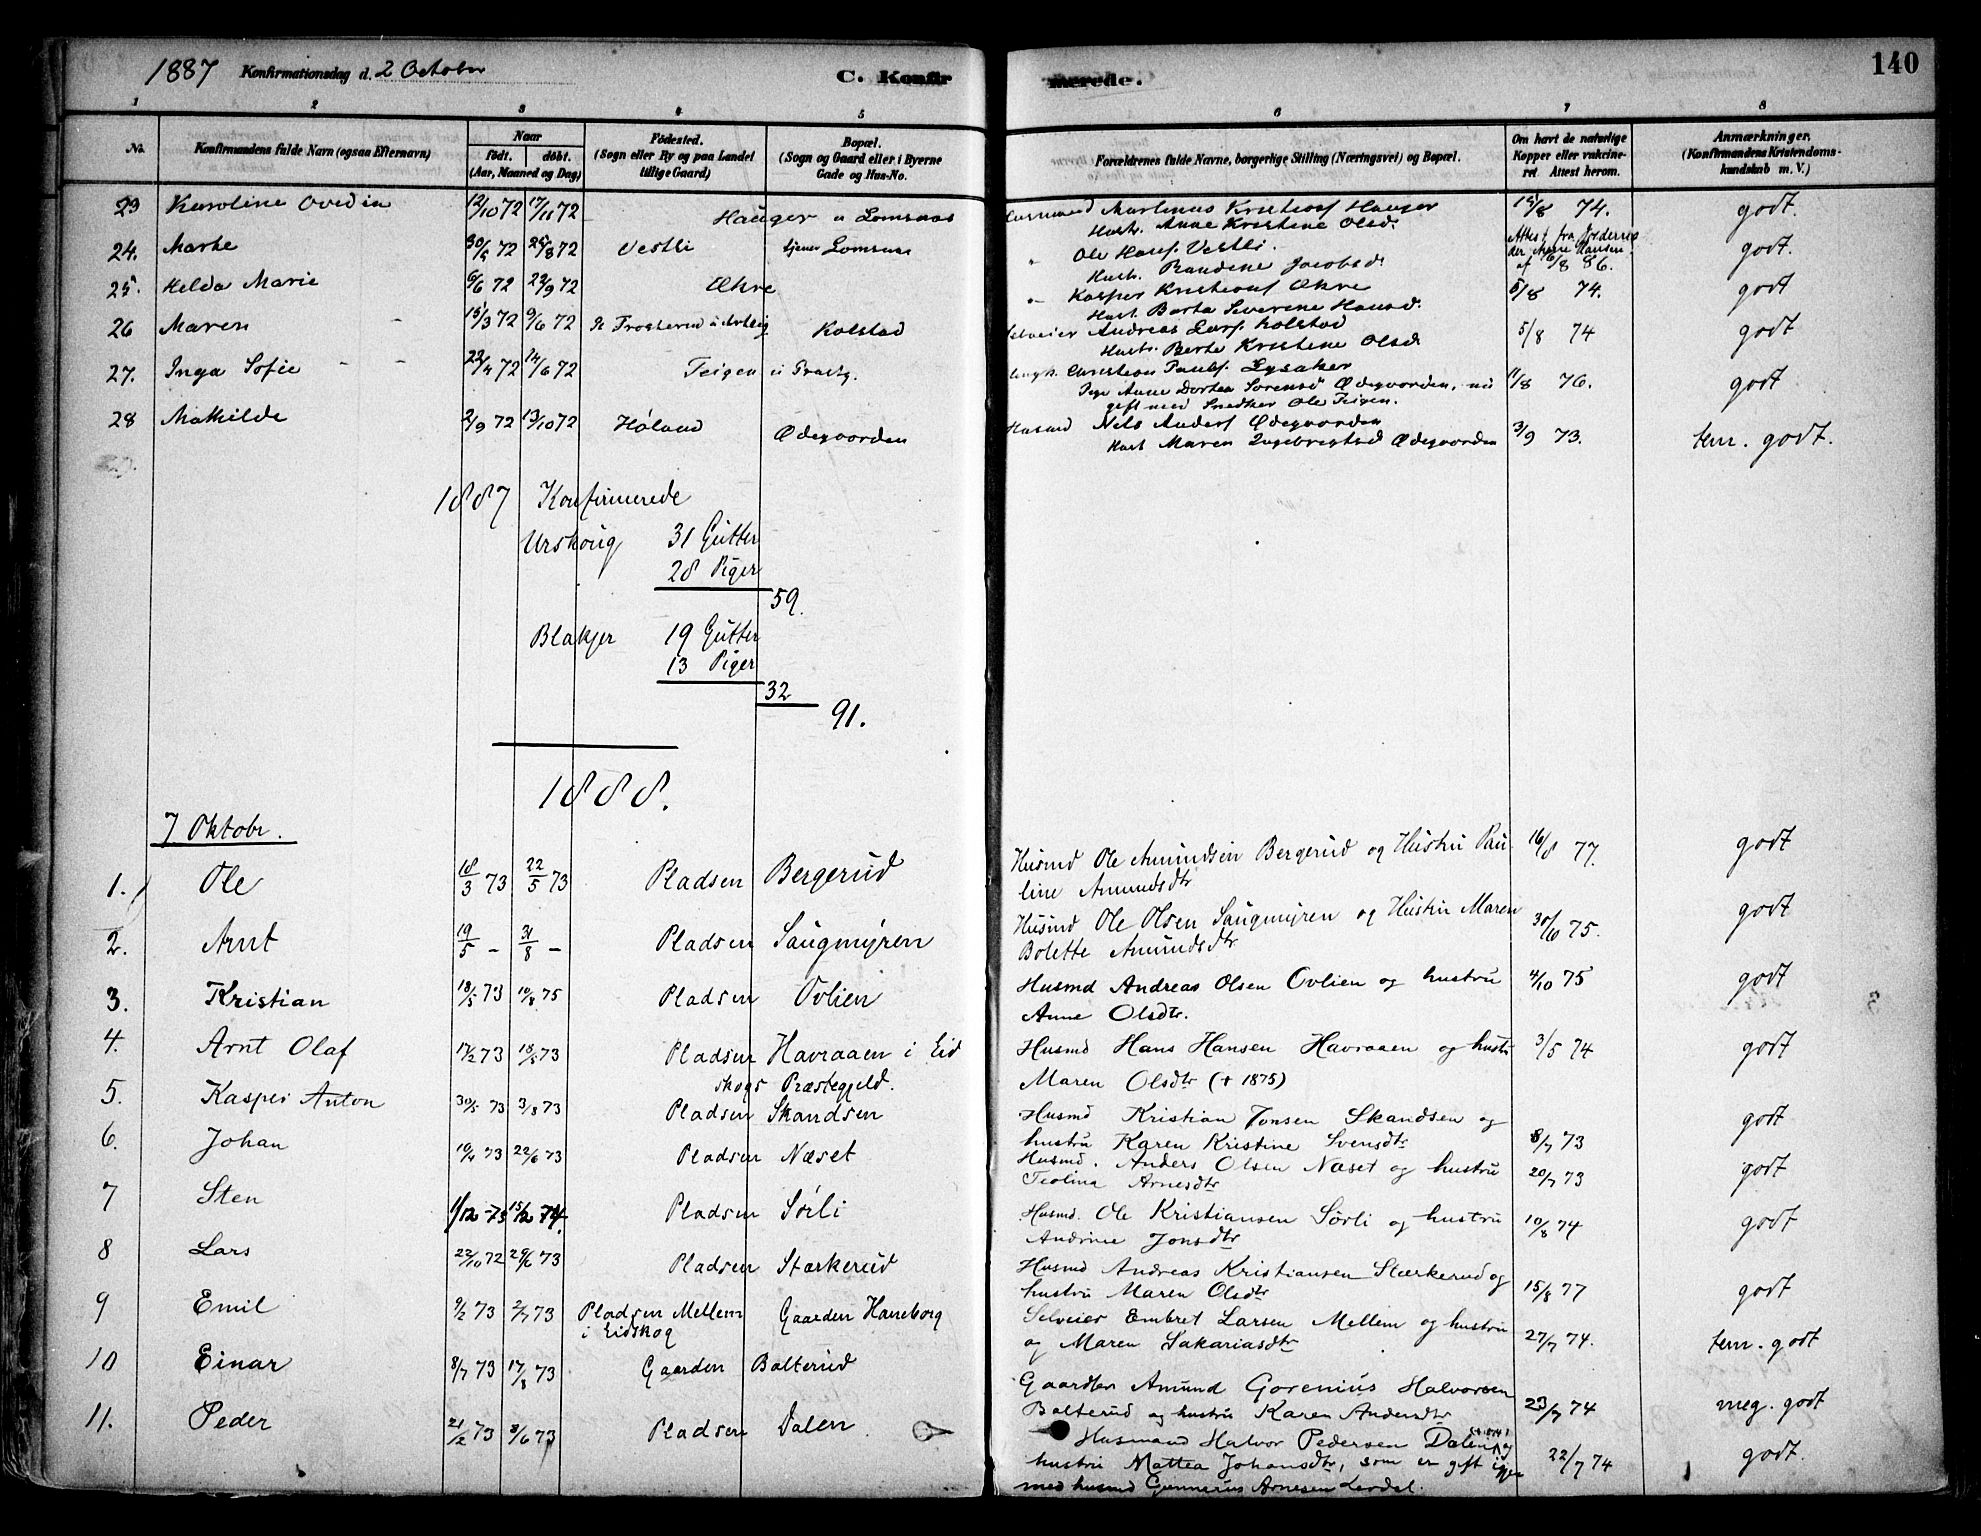 1887 Konfirmationsdag d. 2 October C. Konfirmerede. 140
1 2 3 4 5 6 7 8
No. Konfirmandens fulde Navn (ogsaa Efternavn) Naar født. døbt. (Aar, Maaned og Dag) Fødested. (Sogn eller By og paa Landet tillige Gaard) Bopæl. (Sogn og Gaard eller i Byerne Gade og Hus-No. Forældrenes fulde Navne, borgerlige Stilling (Næringsvei) og Bopæl. Om havt de naturlige Kopper eller vakcineret. Attest herom. Anmærkninger. (Konfirmandens Kristendomskundskab m. V.)
23 Karoline Ovedia 12/10 72 17/11 72 Hauger u Lomsaas Husmand Martinus Kristians Hauger 15/8 74. godt.
Hustr. Anne Kristine Olsd.
24. Marte 30/5 72 25/8 72 Vestli tjener Lomsaas " Ole Hansf. Vestli. Attest fra godt.
Hustr. Randine Jacobsd. af 6/8 86.
25. Helda Marie 6/6 72 22/9 72 Økre " Kasper Kristians Økre 5/8 74. godt
Hust. Berta Severene Hansd.
26 Maren 15/3 72 9/6 72 Kolstad Selveier Andreas Larsf. Kolstad 5/8 74 godt
Hustr. Berte Kristine Olsd
27. Inga Sofie 22/4 72 14/6 72 Teigen u Prestg. Ungk. Christian Paulsf. Lysaker 11/8 76. godt
Pige Anne Dortea Sørensd Ødegaarden, nu
gift med Snedker Ole Teigen.
28 Mathilde 2/9 72 13/10 72 Høland Ødegaarden Husmd Nels Andersf Ødegaarden 3/9 73. tem. godt.
Hust Maren Ingebregtsd Ødegaarden
1887 Konfirmerede
Urskoug 31 Gutter
28 Piger
59.
Blakjer 19 Gutter
13 Piger
32
91.
1888.
7 Oktobr.
1. Ole 18/3 73 22/5 73 Pladsen Bergerud Husmd Ole Amundsen Bergerud og Hustru Pau- 16/8 77. godt
line Amundsdtr
2. Arnt 19/5 - 31/8 - Pladsen Saugmyren Husmd Ole Olsen Saugmyren og Hustru Maren 30/6 75. godt
Bolette Amundsdtr
3. Kristian 18/5 73 10/8 75 Pladsen Ovlien Husmd Andreas Olsen Ovlien og hustru 4/10 75 godt
Anne Olsdtr.
4. Arnt Olaf 17/2 73 18/5 73 Pladsen Havraaen i Eid Husmd Hans Hansen Havraaen og hustr 3/5 74 godt
skogs Præstegjeld. Maren Olsdtr (+ 1875)
5. Kasper Anton 30/5 73 3/8 73 Pladsen Skandsen Husmd Kristian Jonsen Skandsen og godt
hustru Karen Kristine Svensdtr 8/7 73
6. Johan 19/4 73 22/6 73 Pladsen Næset Husmd. Anders Olsen Næset og hustru 20/7 73 godt
Teolina Arnesdtr
7 Sten 1/12 73 15/2 74. Pladsen Sørli Husmd. Ole Kristiansen Sørli og hustru 10/8 74 godt
Andrine Jonsdtr
8 Lars 22/10 72 29/6 73 Pladsen Stærkerud Husmd Andreas Kristiansen Stærkerud og 15/8 77 godt
hustru Maren Olsdtr
9 Emil 9/2 73 2/7 73 Pladsen Mellem Gaarden Haneborg Selveier Embret Larsen Mellem og hustru 27/7 74. tem. godt
i Eidskog og Maren Sakariasdtr
10 Einar 8/7 73 17/8 73 Gaarden Bolterud Gaardbr Amund Gorenius Halvorsen 23/7 74 meg. godt
Bolterud og hustru Karen Andersdtr
11. Peder 21/2 73 8/6 73 Pladsen Dalen Husmand Halvor Pedersen Dalen og 22/7 74 godt.
hustru Mattea Johansdtr, som er gift igjen
med husmd Gunnerus Arnesen Lerdal.